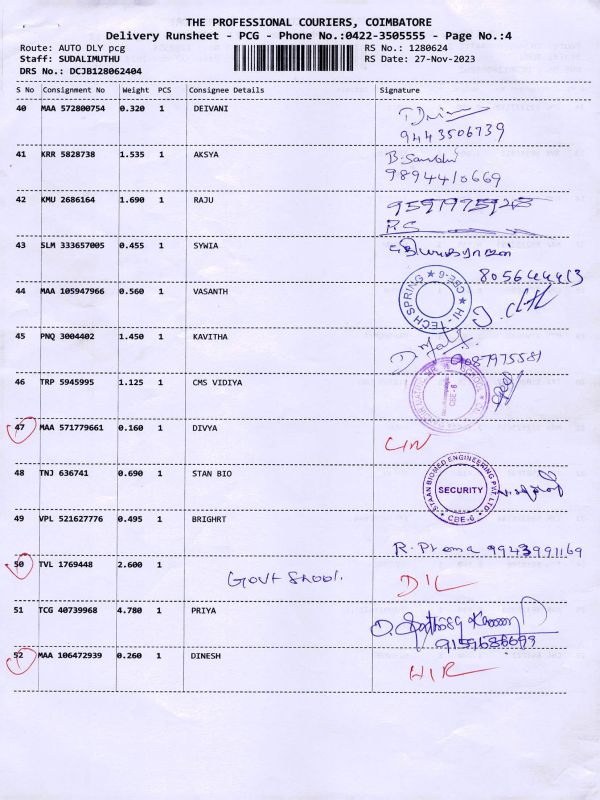 THE PROFESSIONAL COURIERS, COIMBATORE
Delivery Runsheet - PCG - Phone No.:0422-3505555 - Page No.:4
Route: AUTO DLY pcg RS No.: 1280624
Staff: SUDALIMUTHU RS Date: 27-Nov-2023
DRS No.: DCJB128062404
S No Consignment No Weight PCS Consignee Details Signature
40 MAA 572800754 0.320 1 DEIVANI
9443506739
41 KRR 5828738 1.535 1 AKSYA
9894410669
42 KMU 2686164 1.690 1 RAJU
RS
43 SLM 333657005 0.455 1 SYWIA
44 MAA 105947966 0.560 1 VASANTH
HI-TECH SPRING CBE-6
45 PNQ 3004402 1.450 1 KAVITHA
9087975581
46 TRP 5945995 1.125 1 CMS VIDIYA
CBE-6
47 MAA 571779661 0.160 1 DIVYA
48 TNJ 636741 0.690 1 STAN BIO
STAAN BIOMED ENGINEERING PVT LTD
SECURITY
CBE-6
49 VPL 521627776 0.495 1 BRIGHRT
R. Prema 9943991169
50 TVL 1769448 2.600 1
Govt D/L
51 TCG 40739968 4.780 1 PRIYA
52 MAA 106472939 0.260 1 DINESH